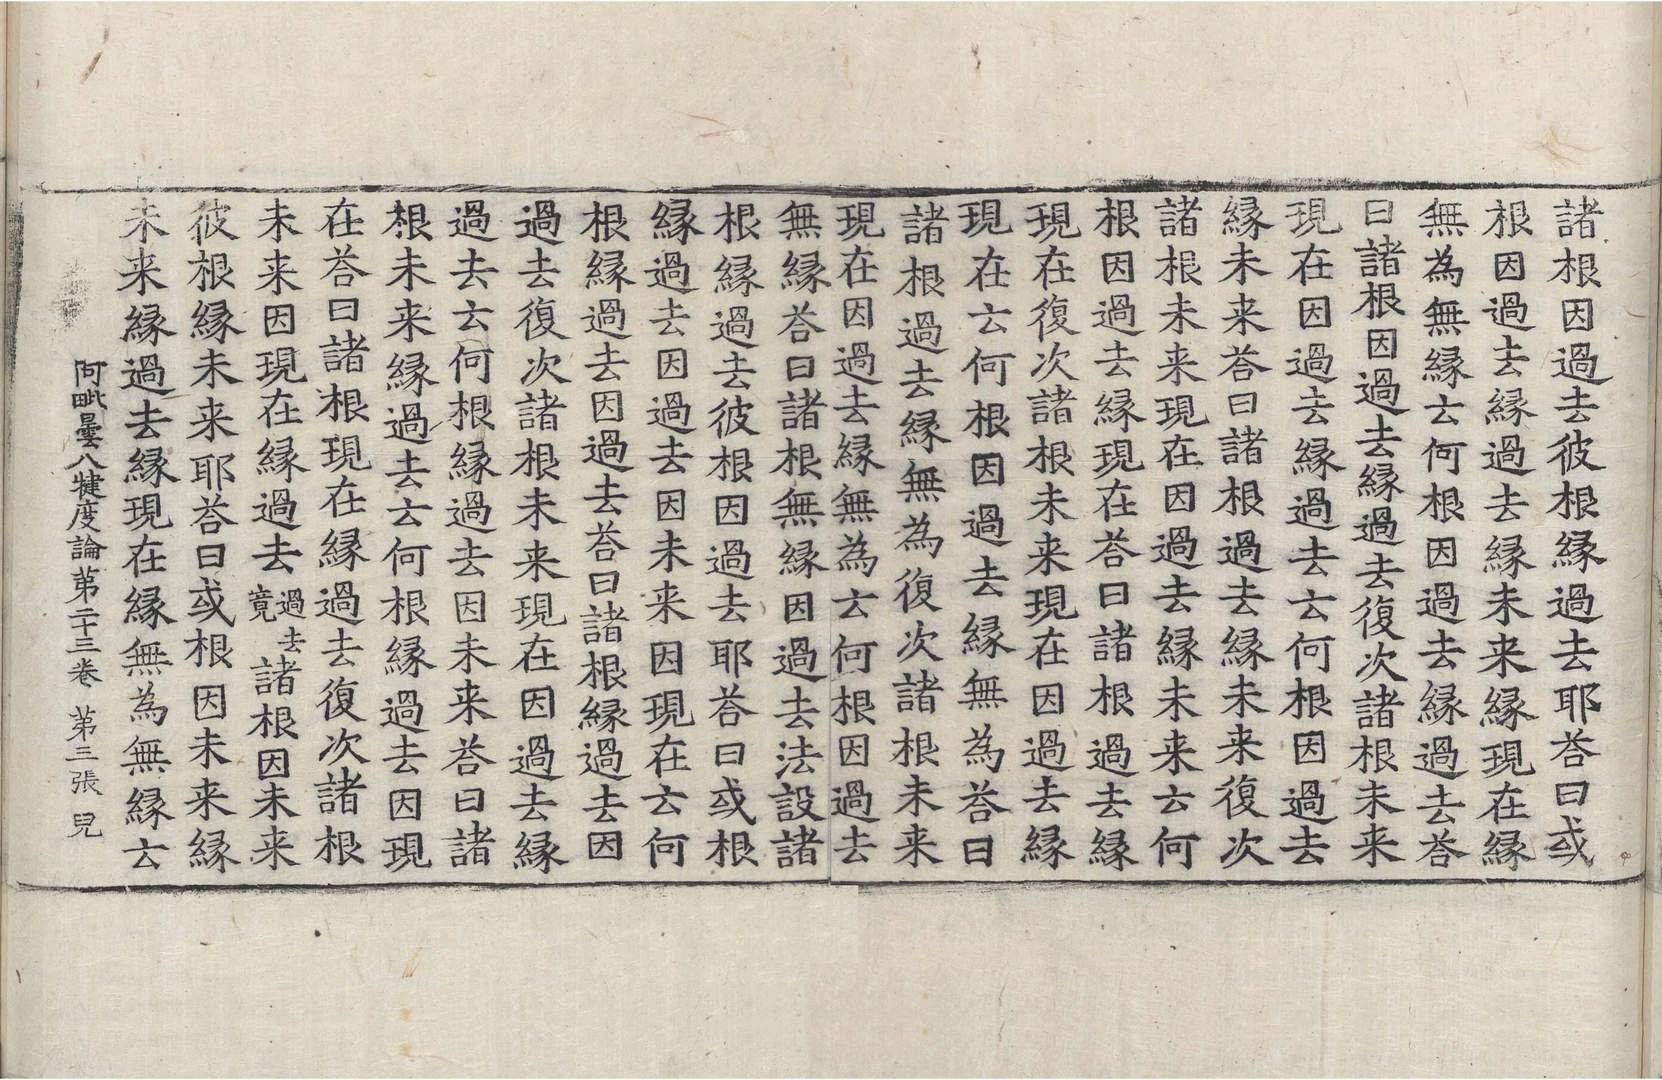 諸根因過去彼根縁過去耶荅曰或
根因過去縁過去縁未来縁現在縁
無為無縁云何根因過去縁過去荅
曰諸根因過去縁過去復次諸根未来
現在因過去縁過去云何根因過去
縁未来荅曰諸根過去縁未来復次
諸根未来現在因過去縁未来云何
根因過去縁現在荅曰諸根過去縁
現在復次諸根未来現在因過去縁
現在云何根因過去縁無為荅曰
諸根過去縁無為復次諸根未来
現在因過去縁無為云何根因過去
無縁荅曰諸根無縁因過去法設諸
根縁過去彼根因過去耶荅曰或根
縁過去因過去因未来因現在云何
根縁過去因過去荅曰諸根縁過去因
過去復次諸根未来現在因過去縁
過去云何根縁過去因未来荅曰諸
根未来縁過去云何根縁過去因現
在荅曰諸根現在縁過去復次諸根
未来因現在縁過去過去竟諸根因未来
彼根縁未来耶荅曰或根因未来縁
未来縁過去縁現在縁無為無縁云
阿毗曇八犍度論第二十三卷 第三張 兒